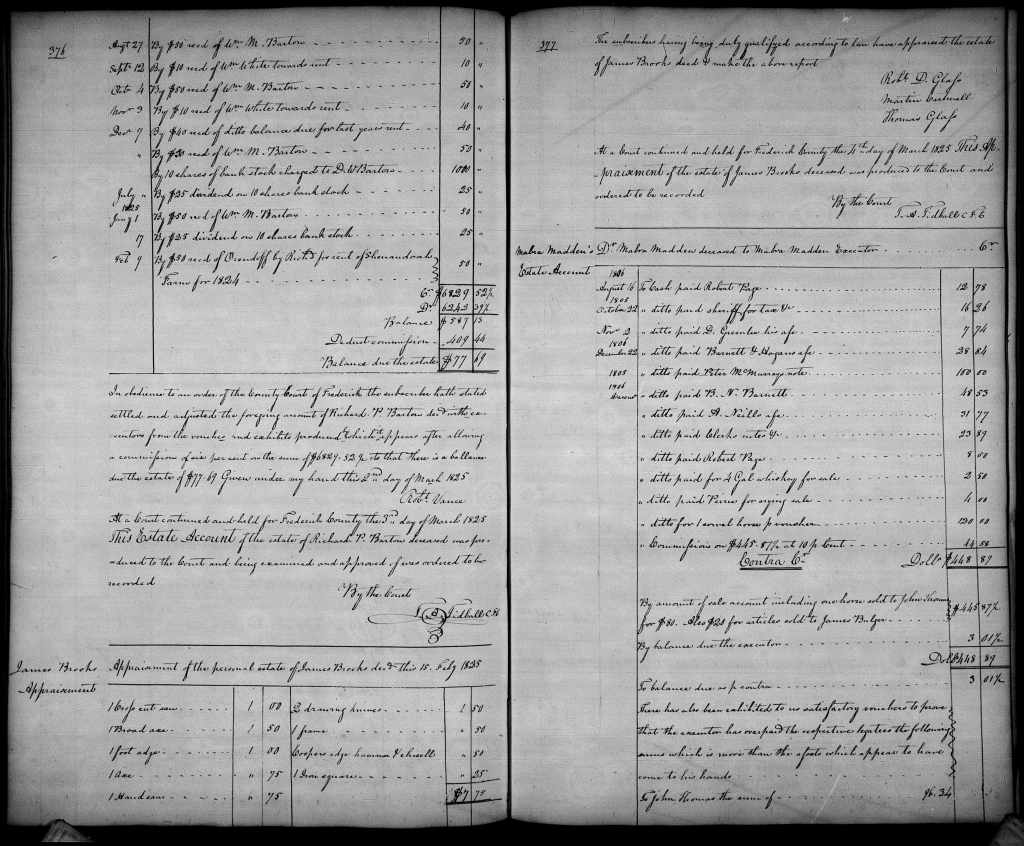 376
Augt 27 By $50 recd of Wm M. Barton 50 "
Septr 12 By $10 recd of Wm White towards rent 10 "
Octr 4 By $50 recd of Wm M. Barton 50 "
Novr 3 By $10 recd of Wm White towards rent 10 "
Decr 7 By $40 recd of ditto balance due for last years rent 40 "
" By $50 recd of Wm M. Barton 50 "
By 10 shares of bank stock charged to D. W. Barton 1000 "
July " By $25 dividend on 10 shares bank stock 25 "
1825
Jany 1 By $50 recd of Wm M. Barton 50 "
17 By $25 dividend on 10 shares bank stock 25 "
Feb 9 By $50 recd of Orndoff by Richd pr rect of Shenandoah
Farm for 1824 50 "
Cr $6829 52½
Dr 6242 39½
Balance $587 13
Deduct commission 409 44
Balance due the estate $77 69
In obedience to an order of the County Court of Frederick the subscriber hath stated
settled and adjusted the foregoing amount of Richard P. Barton decd with ex-
ecutors from the vouchers and exhibits produced by which it appears after allowing
a commission of six per cent on the sum of $6829.52½ cts that there is a ballance
due the estate of $77.69 Given under my hand this 2nd day of March 1825
Robt Vance
At a Court continued and held for Frederick County the 3rd day of March 1825
This Estate Account of the estate of Richard P. Barton deceased was pro-
duced to the Court and being examined and approved of was ordered to be
recorded
By the Court
T. A. Tidball C. F. C
James Brooks Appraisment of the personal estate of James Brooks decd this 15. Feby 1825
Appraisement
1 Crop cut saw 1 00 2 drawing knives 1 50
1 Broad axe 1 50 1 frame " 50
1 foot adge 1 00 Coopers adge hammer & chisell " 50
1 Axe " 75 1 Iron square " 25
1 Hand saw " 75 $7 75
377
The subscribers having being duly qualified according to law have appraised the estate
of James Brooks decd & make the above report
Robt D. Glass
Martin
Thomas Glass
At a Court continued and held for Frederick County the 4th day of March 1825 This Ap-
praisement of the estate of James Brooks deceased was produced to the Court and
ordered to be recorded
By the Court
T. A. Tidball C. F. C
Mabra Madden's Dr Mabra Madden deceased to Mabra Madden Executor Cr
Estate Account 1806
August 16 To Cash paid Robert Page 12 78
1805
October 22 " ditto paid sheriff for tax &c 16 26
Novr 2 " ditto paid D. Greenlee his afc 7 74
1806
December 22 " ditto paid Barnett & Hagans afc 28 84
1805 " ditto paid Peter McMurrays note 100 00
1806 " ditto paid B. N. Barnett 48 53
" ditto paid A. Neills afc 31 77
" ditto paid Clerks notes &c 23 89
" ditto paid Robert Page 8 00
" ditto paid for 4 Gal whiskey for sale 2 50
" ditto paid for crying sale 4 00
" ditto for 1 sorrel horse p voucher 120 00
" Commissions on $445.87½ at 10 p Cent 44 58
Contra Cr Dolls $448 87
By amount of sale account including one horse sold to John Thomas
for $80. Also $20 for articles sold to James Bulger $445 87½
By balance due the executor 3 01½
Dolls $448 89
To balance due as p contra 3 01½
There has also been exhibited to us satisfactory vouchers to prove
that the executor has overpaid the respective legatees the following
sums which is more than the assets which appear to have
come to his hands
To John Thomas the sum of 96.34